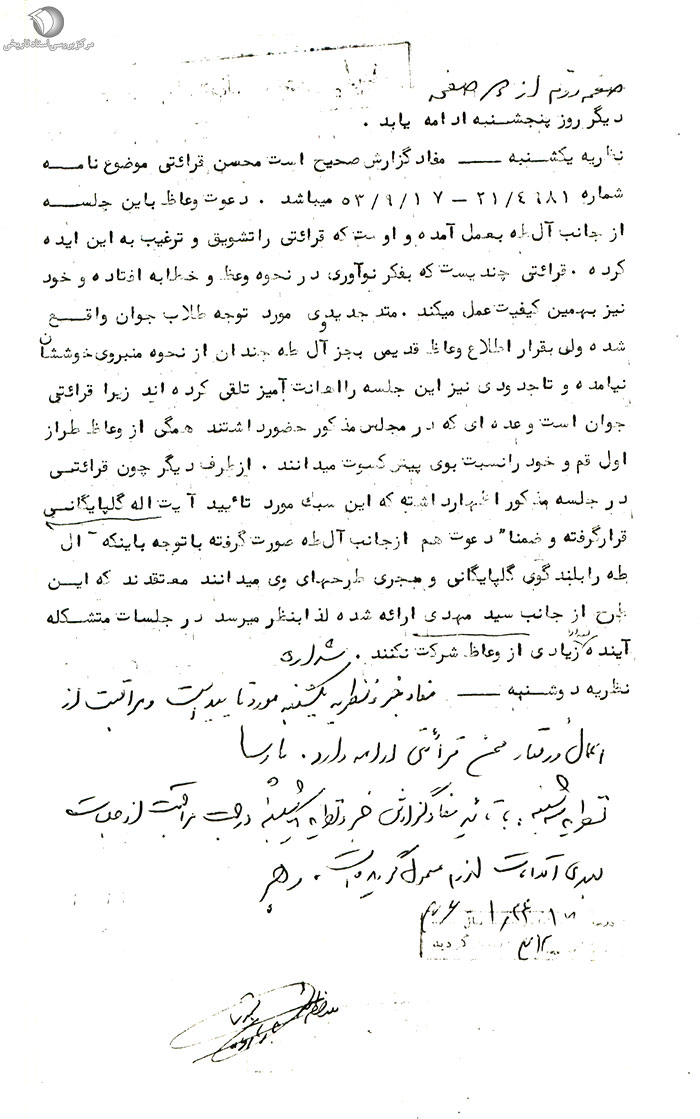 مرکز بررسی اسناد تاریخی
صفحه دوم از صفحه
دیگر روز پنجشنبه ادامه یابد .
نظریه یکشنبه ــــ مفاد گزارش صحیح است محسن قرائتی موضوع نامه
شماره ۲۱/٤٦۸۱ – ۵۳/۹/۱۷ میباشد . دعوت وعاظ باین جلسه
از جانب آل‌طه بعمل آمده و اوست که قرائتی راتشویق و ترغیب به این ایده
کرده . قرائتی چندیست که بفکر نوآوری در نحوه وعظ و خطابه افتاده و خود
نیز بهمین کیفیت عمل میکند . متد جدید وی مورد توجه طلاب جوان واقع
شده ولی بقرار اطلاع وعاظ قدیمی بجز آل طه چندان از نحوه منبروی خوششان
نیامده و تاحدودی نیز این جلسه رااهانت آمیز تلقی کرده اند زیرا قرائتی
جوان است وعده ای که در مجلس مذکور حضورداشتند همگی از وعاظ طراز
اول قم و خود رانسبت بوی پیش کسوت میدانند . ازطرف دیگر چون قرائتی
در جلسه مذکور اظهارداشته که این سبک مورد تائید آیت اله گلپایگانی
قرارگرفته و ضمنا" دعوت هم ازجانب آل‌طه صورت گرفته باتوجه باینکه آل
طه رابلندگوی گلپایگانی و مجری طرحهای وی میدانند معتقدند که این
طرح از جانب سید مهدی ارائه شده لذا بنظر میرسد در جلسات متشکله
آینده تعداد زیادی از وعاظ شرکت نکنند .
نظریه دوشنبه ــــ مفاد خبر و نظریه یکشنبه مورد تایید است و مراقبت از
اعمال و رفتار محسن قرائتی ادامه دارد . پارسا
نظریه سه شنبه : با تائید مفاد گزارش خبر و نظریه یکشنبه در جهت مراقبت از جلسات
بعدی اقدامات لازم معمول گردیده است . رهبر